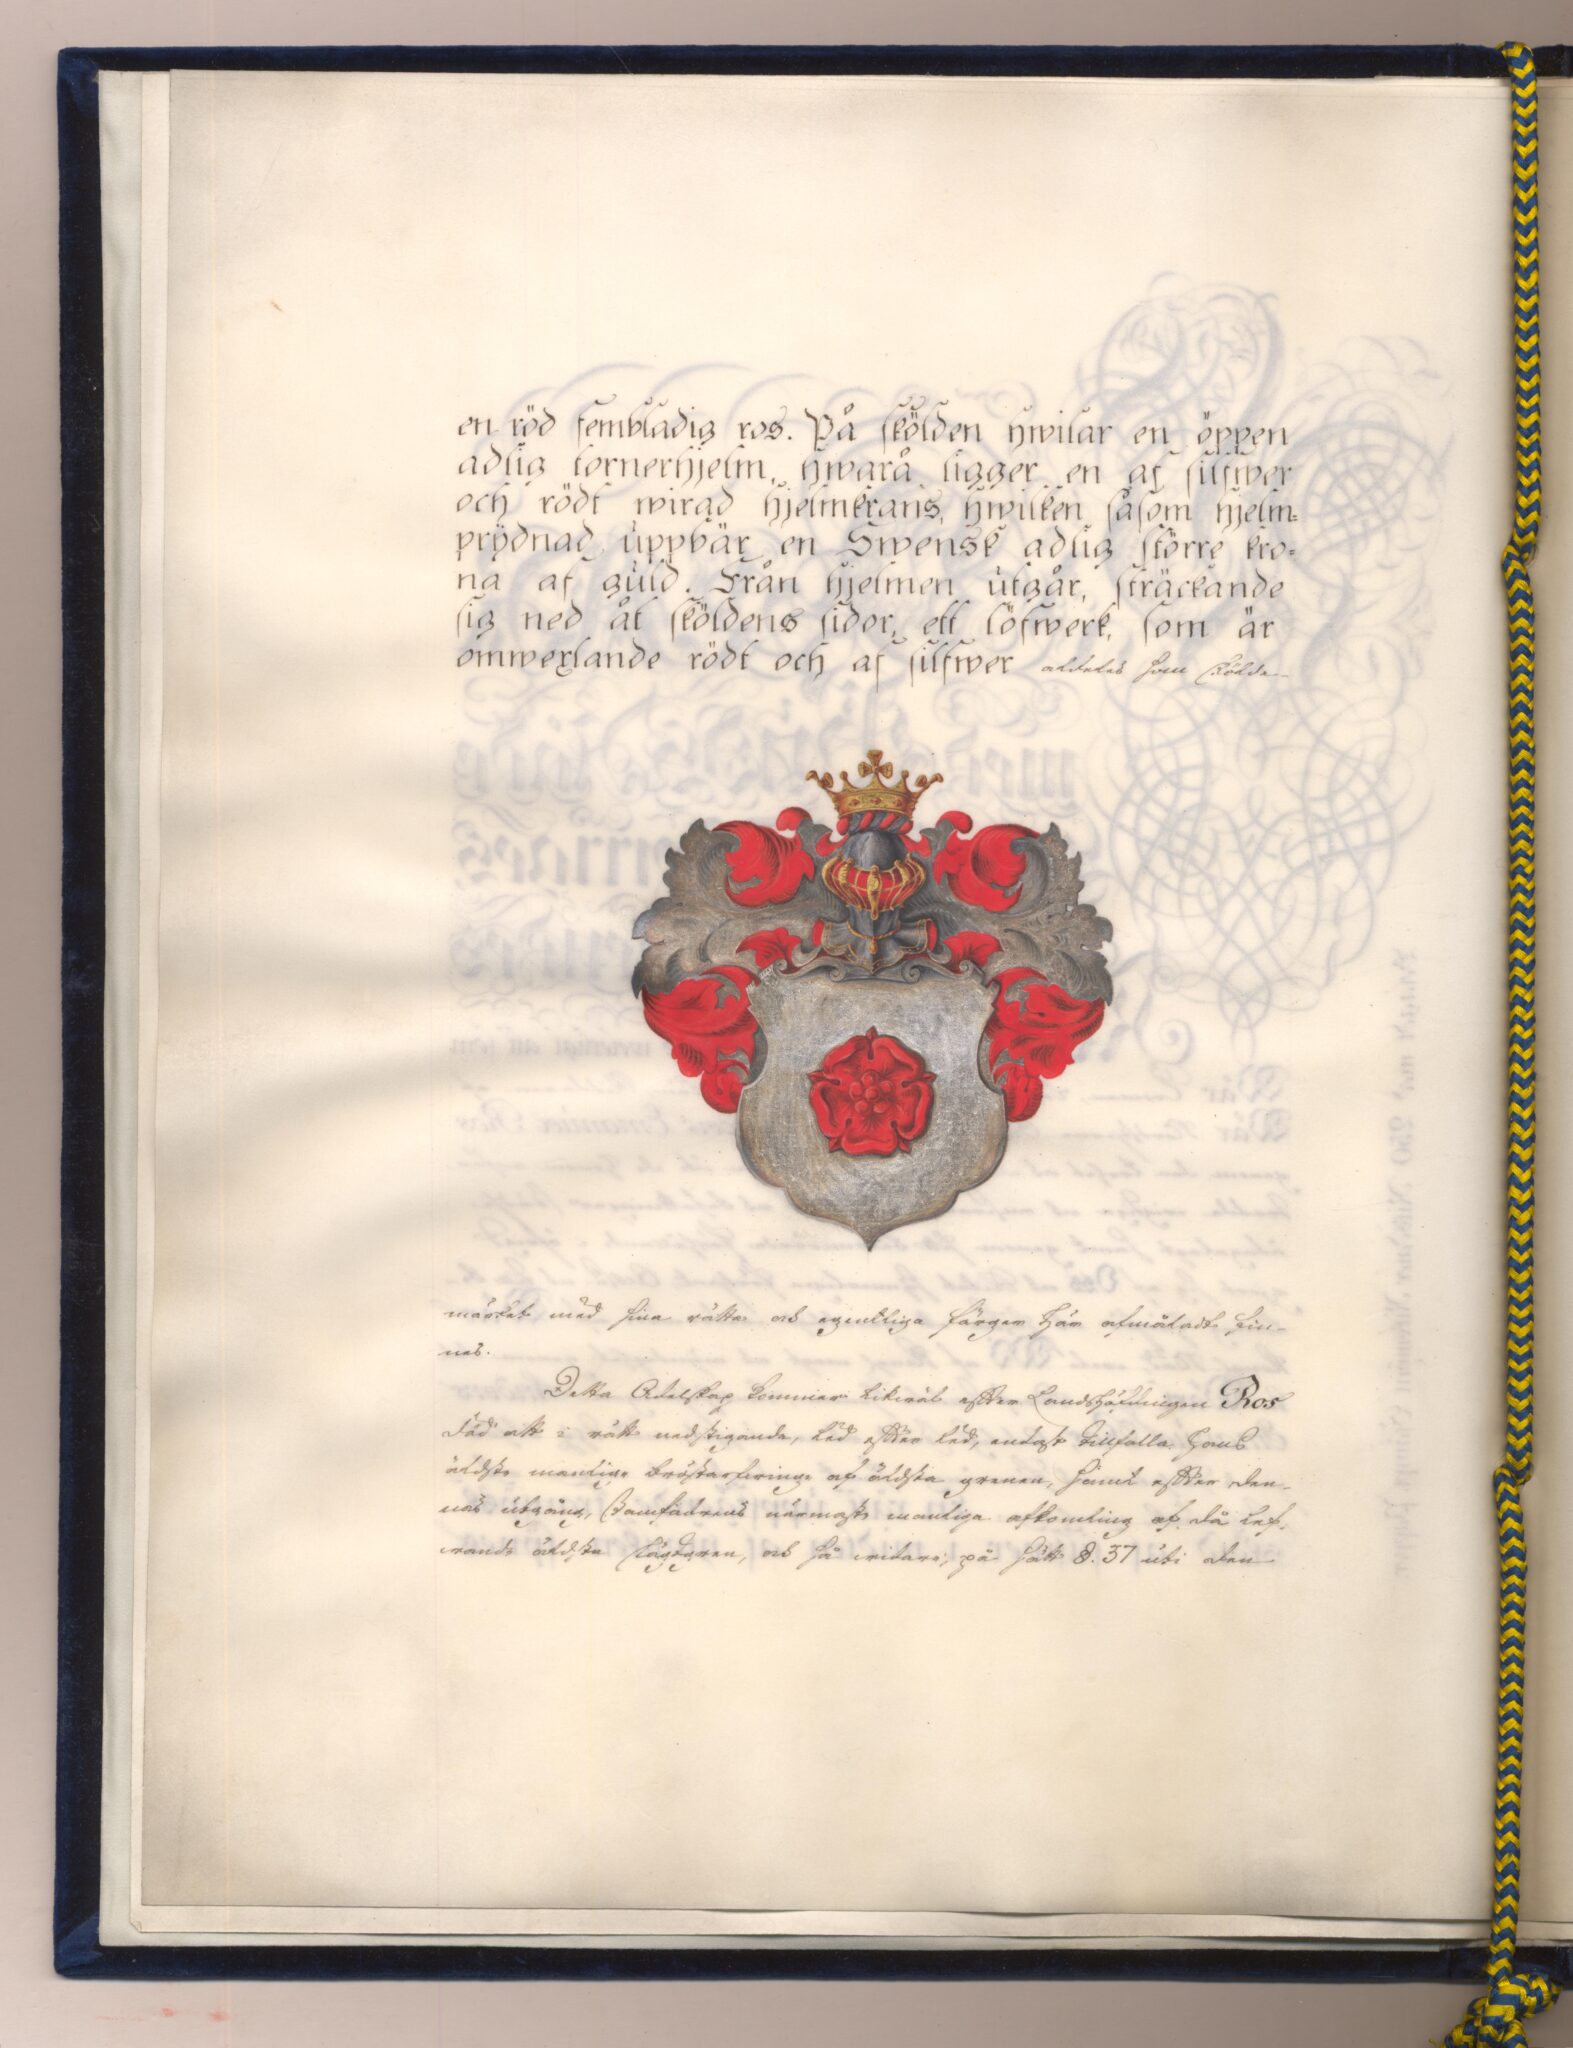 en röd fembladig ros. På skölden hwilar en öppen
adlig tornerhjelm, hwarå ligger en af silfwer
och rödt wirad hjelmkrans, hwilken såsom hjelm=
prydnad uppbär en Swensk adlig större kro=
na af guld. Från hjelmen utgår, sträckande
sig ned åt sköldens sidor, ett löfwerk, som är
omwexlande rödt och af silfwer aldeles som Skölde-
märket med sina rätta och egentliga färger här afmåladt fin-
nes.
Detta Adelskap kommer likwäl efter Landshöfdingen Ros
död att i rätt nedstigande, led efter led, endast tillfalla Hans
äldste manlige bröstarfvinge af äldsta grenen, samt efter den-
nas utgång, Stamfadrens närmaste manliga afkomling af då lef-
wande äldsta slägtgren, och så widare, på sätt §. 37 uti den